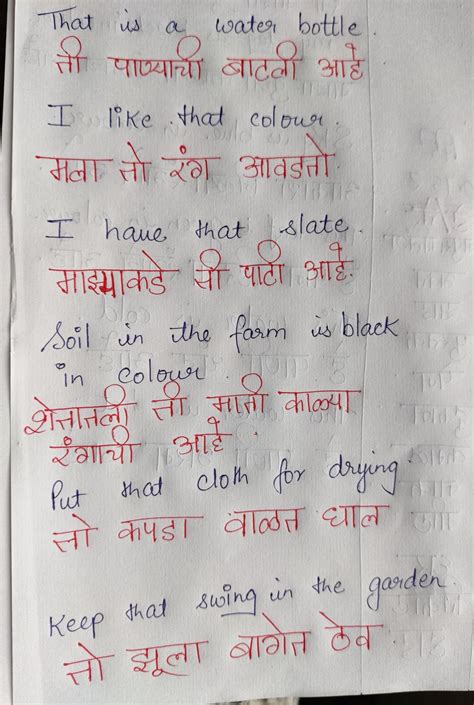 That is a water bottle.
ती पाण्याची बाटली आहे
I like that colour.
मला तो रंग आवडतो.
I have that slate.
माझ्याकडे ती पाटी आहे.
Soil in the farm is black
in colour.
शेतातली ती माती काळ्या
रंगाची आहे.
Put that cloth for drying.
तो कपडा वाळत घाल
Keep that swing in the garden.
तो झूला बागेत ठेव.